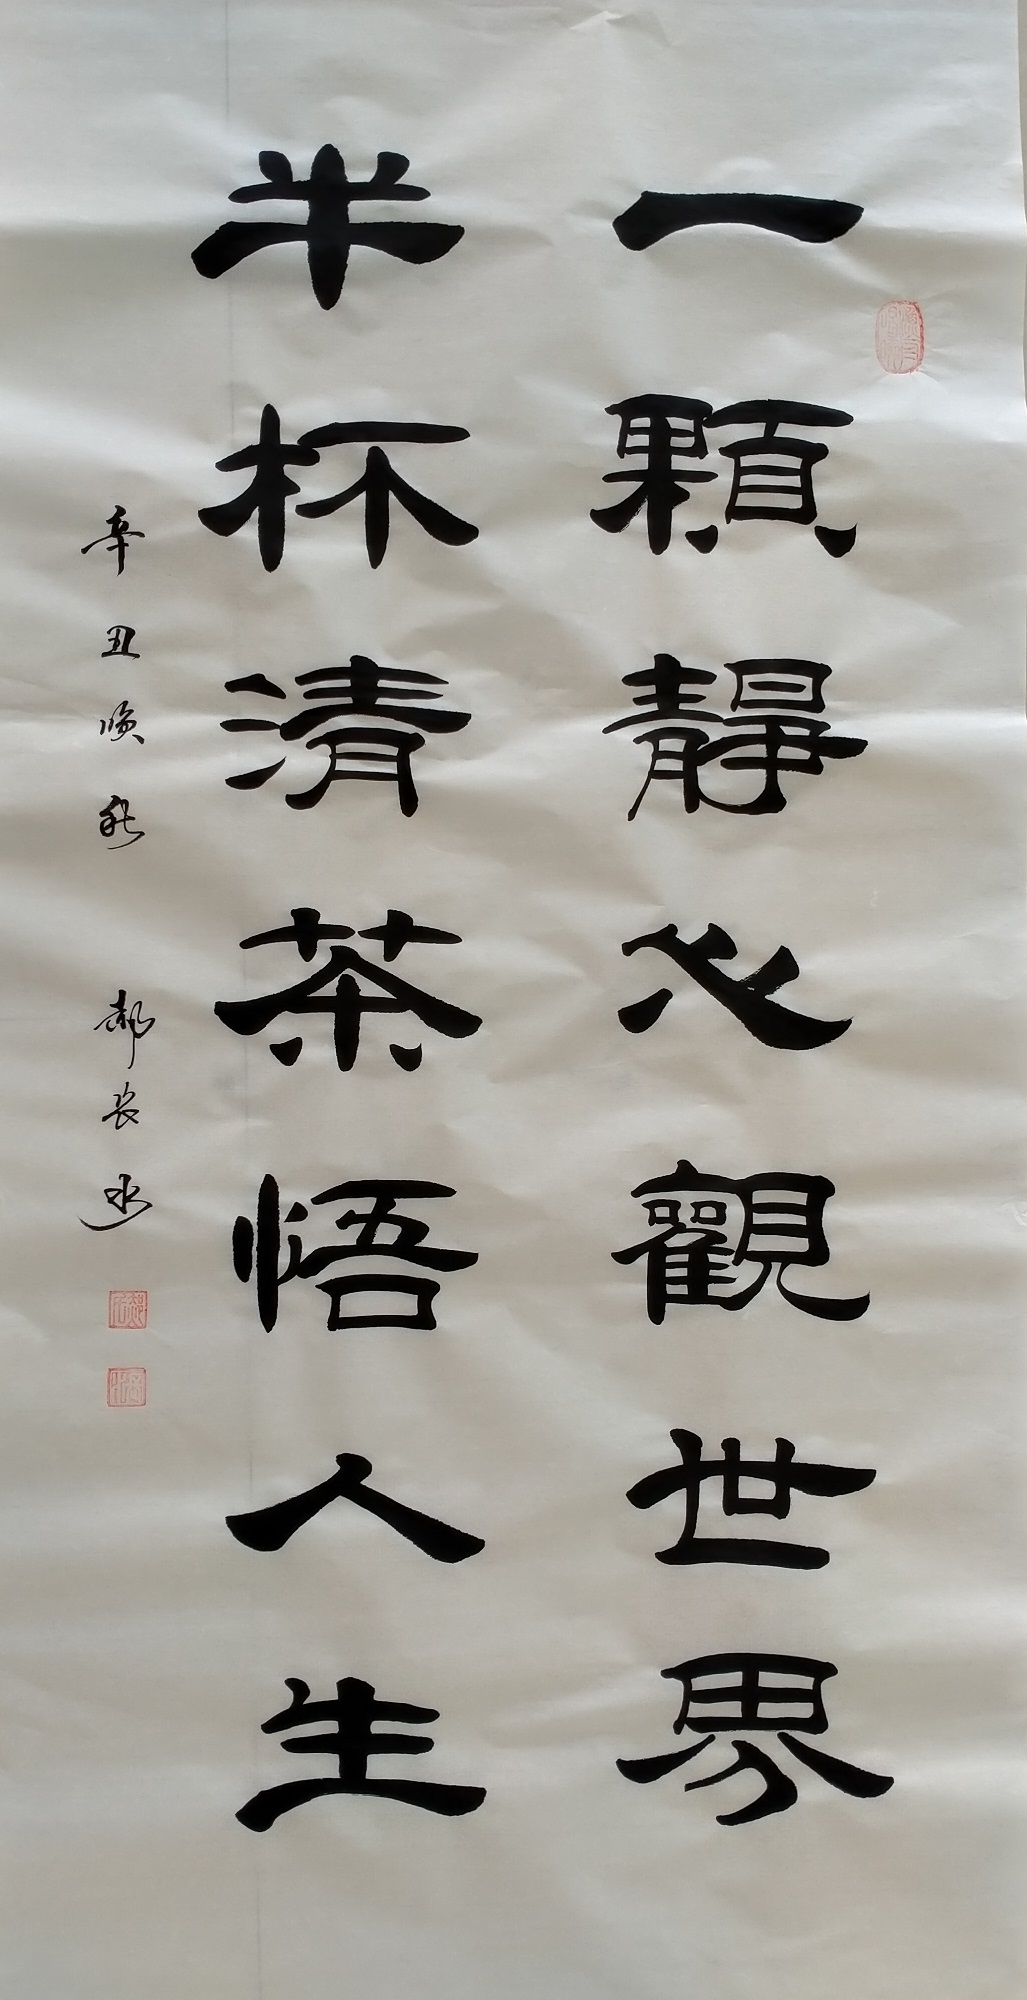 一顆靜心觀世界
半杯清茶悟人生
辛丑 郝长